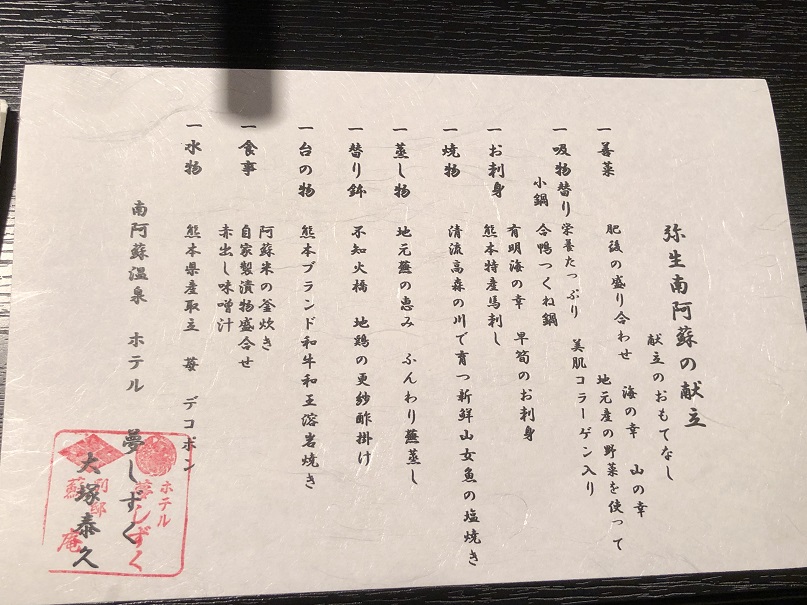 弥生南阿蘇の献立
献立のおもてなし
海の幸　山の幸
一 善菜　肥後の盛り合わせ　地元産の野菜を使って
一 吸物替り　栄養たっぷり　美肌コラーゲン入り
小鍋　合鴨つくね鍋
有明海の幸　早筍のお刺身
一 お刺身　熊本特産馬刺し
一 焼物　清流高森の川で育つ新鮮山女魚の塩焼き
一 蒸し物　地元蕪の恵み　ふんわり蕪蒸し
一 替り鉢　不知火橋　地鶏の更紗酢掛け
一 台の物　熊本ブランド和牛和王溶岩焼き
阿蘇米の釜炊き
一 食事　自家製漬物盛合せ
赤出し味噌汁
一 水物　熊本県産取立　苺　デコポン
南阿蘇温泉　ホテル　夢しずく
大塚泰久
ホテル
夢しずく
別邸
蘇庵